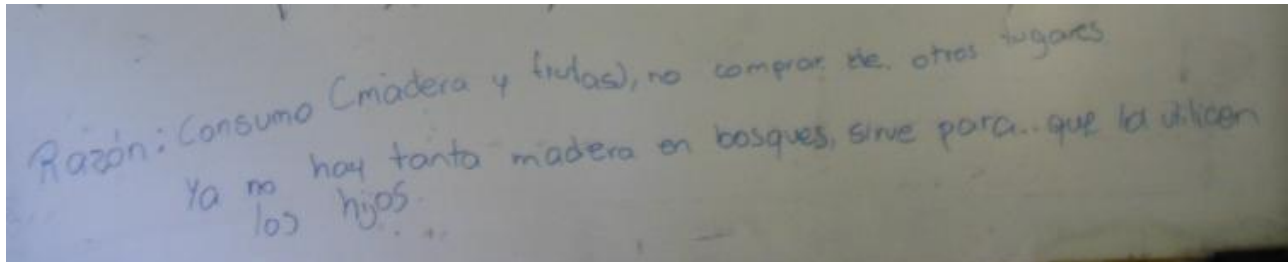 Razón: Consumo (madera y frutas), no comprar de otros lugares
Ya no hay tanta madera en bosques, sirve para que la utilicen
los hijos.